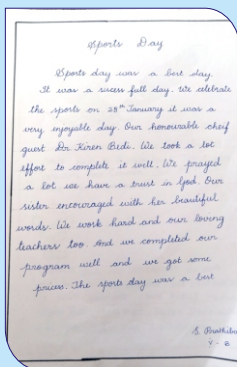 Sports Day
Sports day was a best day.
It was a sucess full day. We celebrate
the sports on 28th January it was a
very enjoyable day. Our honourable cheif
guest Dr. Kiren Bedi. We took a lot
effort to complete it well. We prayed
a lot we have a trust in God. Our
sister encouraged with her beautiful
words. We work hard and our loving
teachers too. And we completed our
program well and we got some
prices. The sports day was a best
S.
V - B